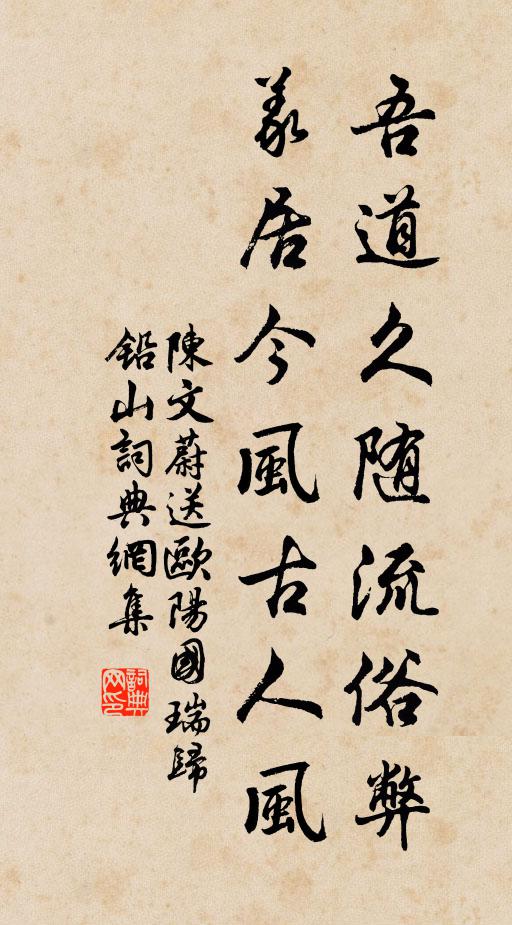 吾道久随流俗弊
義居今風古人風
陳文蔚送歐陽國瑞歸
鉛山詞典網集
詞典
网印